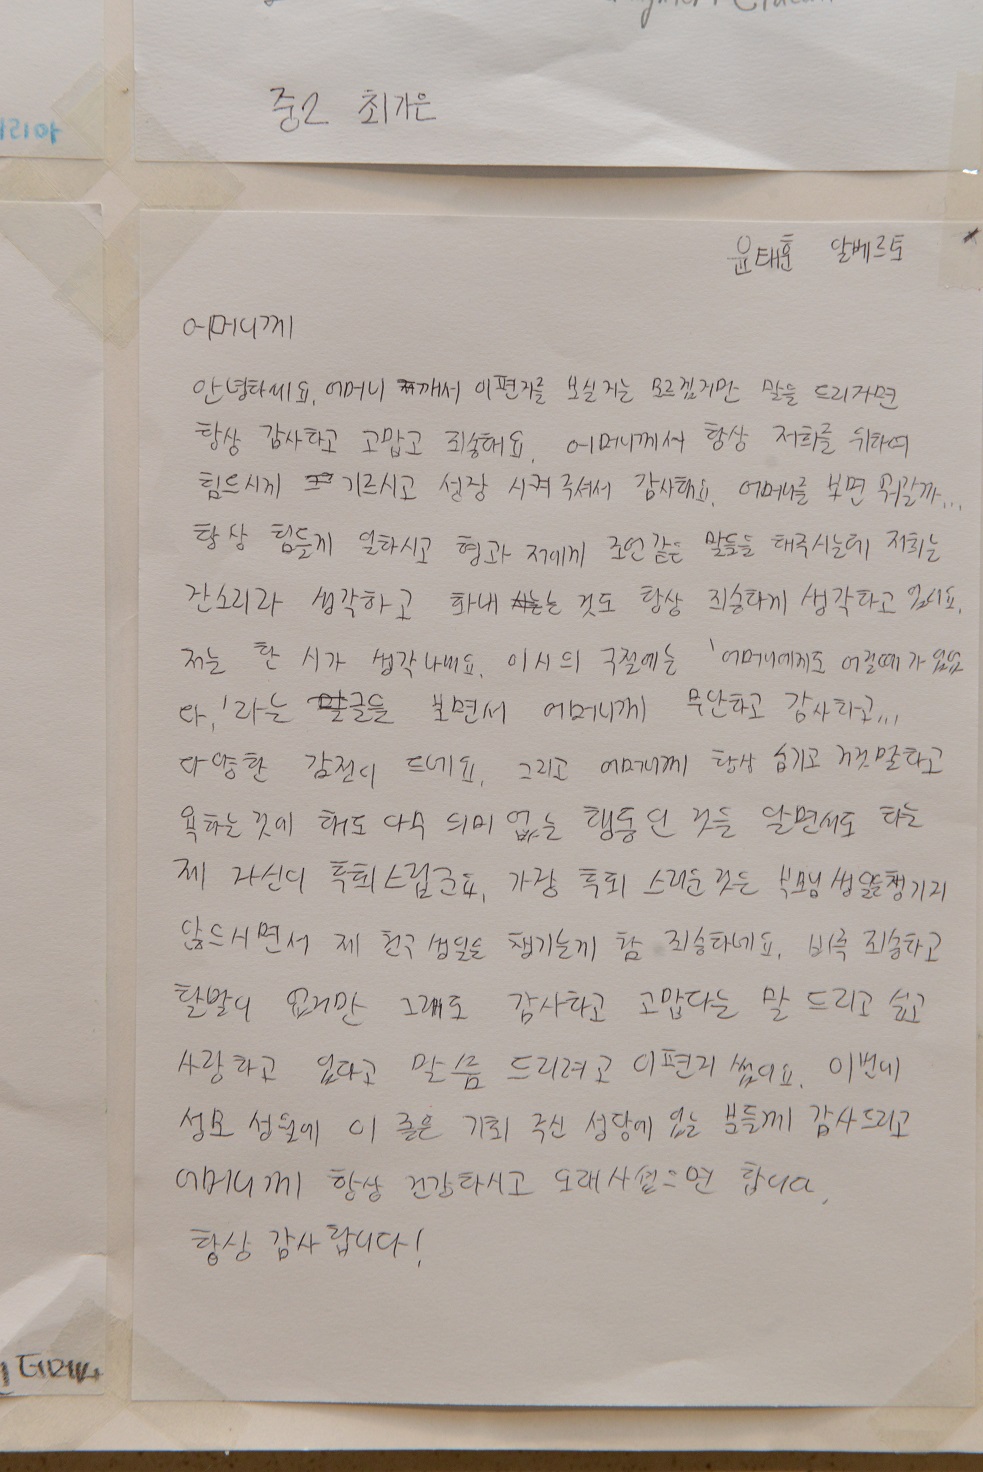 중2 최가은
윤태훈 알베르토
어머니께
안녕하세요. 어머니 께서 이 편지를 보실지는 모르겠지만 말을 드리자면
항상 감사하고 고맙고 죄송해요. 어머니께서 항상 저희를 위하여
힘드시게 기르시고 성장 시켜 주셔서 감사해요. 어머니를 보면 뭐랄까...
항상 힘들게 일하시고 형과 저에게 조언같은 말들을 해주시는데 저희는
잔소리라 생각하고 화내는 것도 항상 죄송하게 생각하고 있어요.
저는 한 시가 생각나네요. 이 시의 구절에는 '어머니에게도 어릴때가 있었
다.'라는 글을 보면서 어머니께 무안하고 감사하고...
다양한 감정이 드네요. 그리고 어머니께 항상 숨기고 거짓말하고
욕하는 것이 해도 다수 의미 없는 행동인 것을 알면서도 하는
제 자신이 후회스럽군요. 가장 후회 스러운 것은 부모님 생일을 챙기지
않으시면서 제 친구 생일을 챙기는게 참 죄송하네요. 비록 죄송하고
할말이 없지만 그래도 감사하고 고맙다는 말 드리고 싶고
사랑하고 있다고 말씀 드리려고 이 편지 썼어요. 이번에
성모 성월에 이 좋은 기회 주신 성당에 있는 분들께 감사드리고
어머니께 항상 건강하시고 오래사셨으면 합니다.
항상 감사합니다!